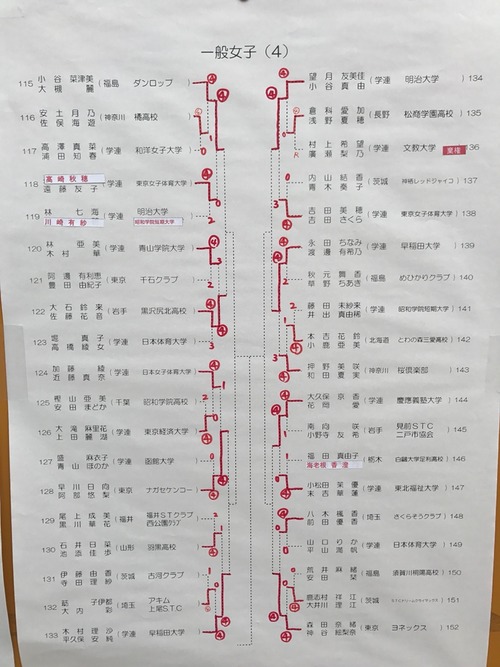 一般女子（4）
115 小谷 菜津美 大槻 麗 （福島 ダンロップ）
116 安土 月乃 佐俣 海遊 （神奈川 橘高校）
117 高澤 真菜 浦田 知春 （学連 和洋女子大学）
118 高崎 秋穂 遠藤 友子 （学連 東京女子体育大学）
119 林 七海 川崎 有紗 （学連 明治大学 昭和学院短期大学）
120 林 亜美 木村 華 （学連 青山学院大学）
121 阿邊 有利恵 豊田 由紀子 （東京 千石クラブ）
122 大石 鈴来 佐藤 花音 （岩手 黒沢尻北高校）
123 堀 真子 高橋 綾女 （学連 日本体育大学）
124 加藤 綾 近藤 真奈 （学連 日本女子体育大学）
125 樫山 亜美 安田 まどか （千葉 昭和学院高校）
126 大滝 麻里花 上田 麗湖 （学連 東京経済大学）
127 盛 麻衣子 青山 ほのか （学連 函館大学）
128 早川 日向 阿部 悠梨 （東京 ナガセケンコー）
129 尾上 成美 黒川 華花 （福井 福井STクラブ 西公園クラブ）
130 石井 日菜 池添 佳歩 （山形 羽黒高校）
131 伊藤 由香 寺田 理紗 （茨城 古河クラブ）
132 子伊都 大内 彩 （埼玉 アキム 上尾S.T.C）
133 木村 理沙 平久保 安純 （学連 早稲田大学）
望月 友美佳 小谷 真由 （学連 明治大学） 134
倉科 愛加 浅野 夏穂 （長野 松商学園高校） 135
村上 希望 廣瀬 梨乃 （学連 文教大学） 棄権 136
内山 結香 青木 奏子 （茨城 神栖レッドジャイコ） 137
吉田 美穂 吉田 さくら （学連 東京女子体育大学） 138
永田 ちなみ 渡邊 有希乃 （学連 早稲田大学） 139
秋元 舞香 草野 ちあき （福島 めひかりクラブ） 140
藤田 未紗来 井出 真由稀 （学連 昭和学院短期大学） 141
本吉 花鈴 小鹿 亜美 （北海道 とわの森三愛高校） 142
押野 美咲 和田 夏実 （神奈川 桜倶楽部） 143
大久保 京香 花岡 愛 （学連 慶應義塾大学） 144
南向 咲 小野寺 友希 （岩手 見前STC 二戸市協会） 145
福田 真由子 海老根 香澄 （栃木 白鷗大学足利高校） 146
小松田 茉優 末吉 華蓮 （学連 東北福祉大学） 147
八木 楓香 前田 優香 （埼玉 さくらそうクラブ） 148
山口 りか 平山 満帆 （学連 日本体育大学） 149
荒井 麻緒 安田 栞 （福島 須賀川桐陽高校） 150
鹿志村 祥江 大井川 理江 （茨城） 151
森田 奈緒 神谷 絵梨奈 （東京 ヨネックス） 152